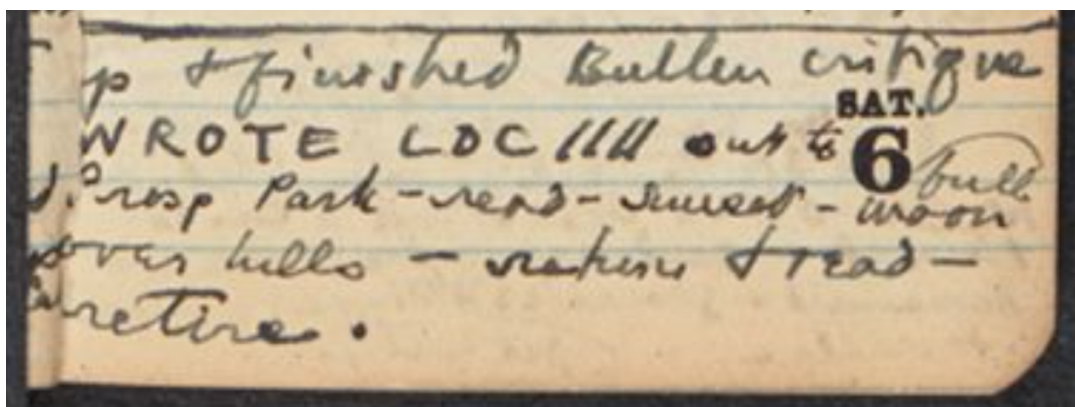 up & finished Bullen critique
SAT.
WROTE LDC //// out to 6 full
Prosp Park - read - sunset - moon
over hills - return & read -
retire.